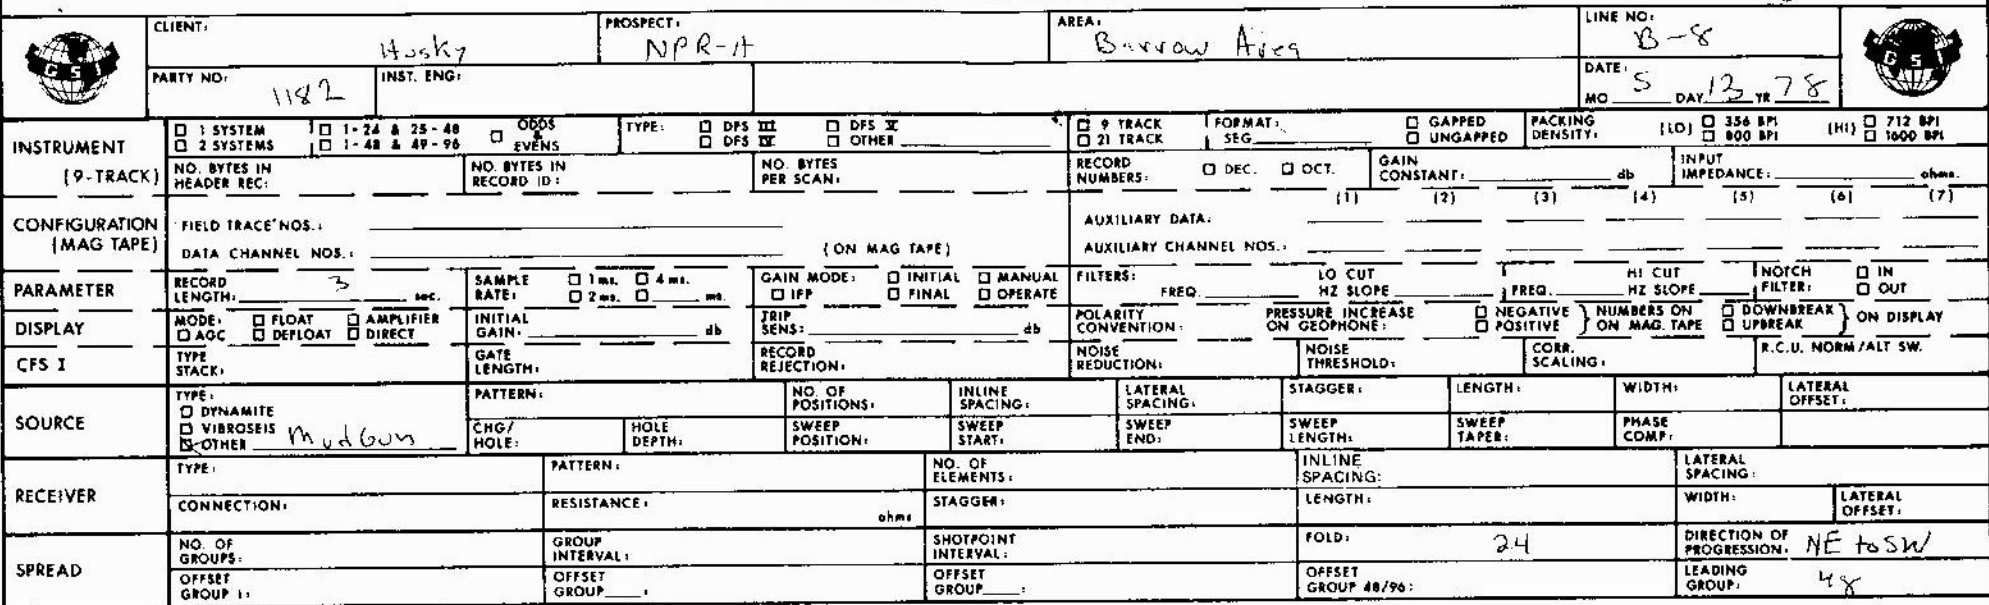 CLIENT: Husky PROSPECT: NPR-A AREA: Barrow Area LINE NO: B-8
GSI GSI
PARTY NO: 1182 INST. ENG: DATE: MO 5 DAY 13 YR 78
INSTRUMENT (9-TRACK)
☐ 1 SYSTEM ☐ 1-24 & 25-48 ☐ ODDS & EVENS TYPE: ☐ DFS III ☐ DFS V ☐ 9 TRACK FORMAT: ☐ GAPPED PACKING DENSITY: (LO) ☐ 356 BPI (HI) ☐ 712 BPI
☐ 2 SYSTEMS ☐ 1-48 & 49-96 ☐ DFS IV ☐ OTHER ☐ 21 TRACK SEG ☐ UNGAPPED ☐ 800 BPI ☐ 1600 BPI
NO. BYTES IN HEADER REC: NO. BYTES IN RECORD ID: NO. BYTES PER SCAN: RECORD NUMBERS: ☐ DEC. ☐ OCT. GAIN CONSTANT: db INPUT IMPEDANCE: ohms.
CONFIGURATION (MAG TAPE)
(1) (2) (3) (4) (5) (6) (7)
FIELD TRACE NOS.: AUXILIARY DATA:
DATA CHANNEL NOS.: (ON MAG TAPE) AUXILIARY CHANNEL NOS.:
PARAMETER
RECORD LENGTH: 3 sec. SAMPLE RATE: ☐ 1 ms. ☐ 4 ms. ☐ 2 ms. ☐ ms. GAIN MODE: ☐ INITIAL ☐ MANUAL ☐ IFP ☐ FINAL ☐ OPERATE FILTERS: FREQ. LO CUT HZ SLOPE FREQ. HI CUT HZ SLOPE NOTCH FILTER: ☐ IN ☐ OUT
DISPLAY
MODE: ☐ FLOAT ☐ AMPLIFIER ☐ AGC ☐ DEFLOAT ☐ DIRECT INITIAL GAIN: db TRIP SENS: db POLARITY CONVENTION: PRESSURE INCREASE ON GEOPHONE: ☐ NEGATIVE ☐ POSITIVE } NUMBERS ON ON MAG. TAPE ☐ DOWNBREAK ☐ UPBREAK } ON DISPLAY
CFS I
TYPE STACK: GATE LENGTH: RECORD REJECTION: NOISE REDUCTION: NOISE THRESHOLD: CORR. SCALING: R.C.U. NORM/ALT SW.
SOURCE
TYPE: PATTERN: NO. OF POSITIONS: INLINE SPACING: LATERAL SPACING: STAGGER: LENGTH: WIDTH: LATERAL OFFSET:
☐ DYNAMITE
☐ VIBROSEIS
☒ OTHER MudGun CHG/HOLE: HOLE DEPTH: SWEEP POSITION: SWEEP START: SWEEP END: SWEEP LENGTH: SWEEP TAPER: PHASE COMP:
RECEIVER
TYPE: PATTERN: NO. OF ELEMENTS: INLINE SPACING: LATERAL SPACING:
CONNECTION: RESISTANCE: ohms STAGGER: LENGTH: WIDTH: LATERAL OFFSET:
SPREAD
NO. OF GROUPS: GROUP INTERVAL: SHOTPOINT INTERVAL: FOLD: 24 DIRECTION OF PROGRESSION: NE to SW
OFFSET GROUP 1: OFFSET GROUP : OFFSET GROUP : OFFSET GROUP 48/96: LEADING GROUP: 48